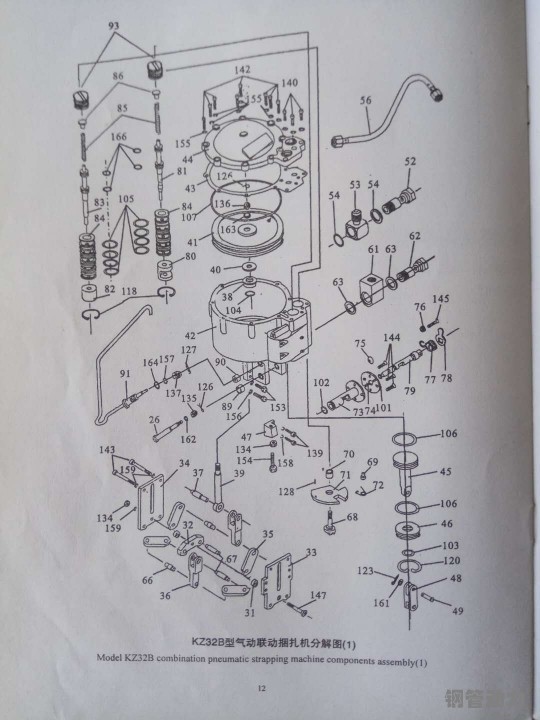 93
142
86
140
155
85
56
166
155
44
126
81
43
52
136
53
54
54
105
83
107
84
84
163
41
61
63
62
80
40
82
118
38
63
104
42
76
145
127
90
75
157
164
144
77
78
91
137
135
126
102
79
89
153
101
156
73 74
26
162
47
106
139
134
70
143
34
154
158
69
159
37
39
71
45
72
128
134
106
159
68
32
35
46
33
103
67
120
123
48
66
161
36
31
147
49
KZ32B型气动联动捆扎机分解图(1)
Model KZ32B combination pneumatic strapping machine components assembly(1)
12